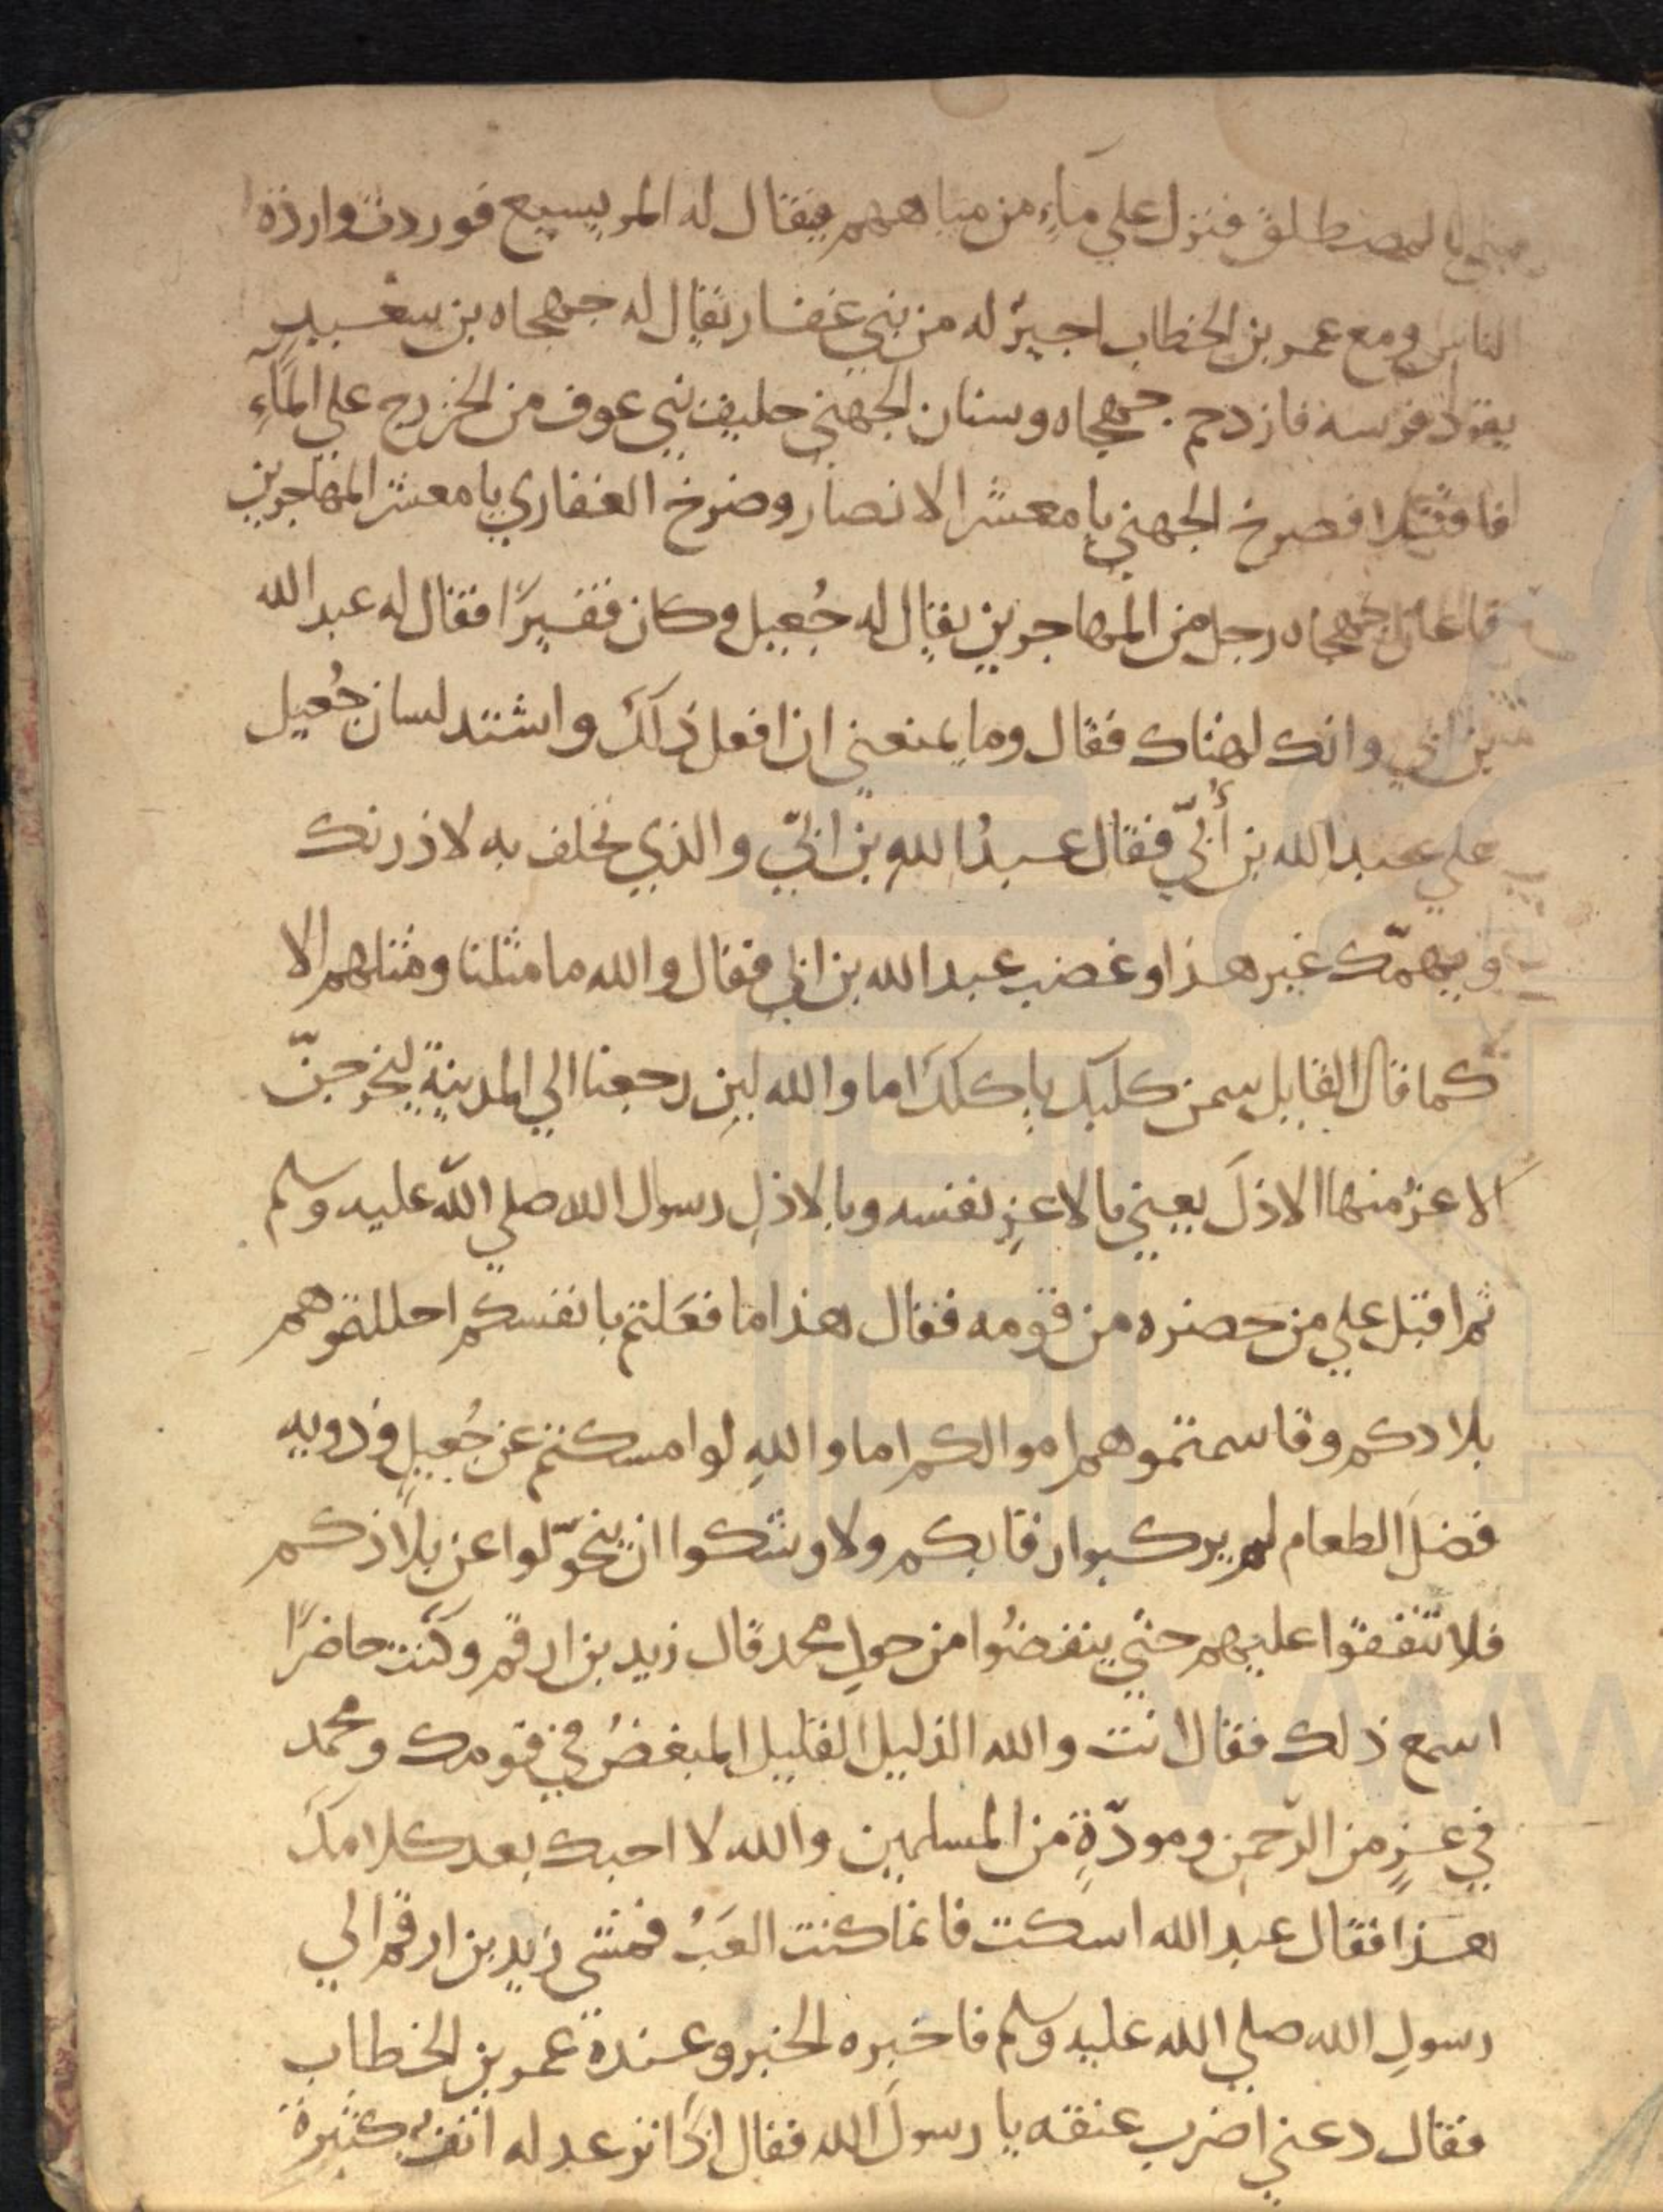 بني المصطلق فنزل علي مآءٍ من مياههم يقال له المريسيع فوردت واردة
الناس ومع عمر بن الخطاب اجيرٌ له من بني غفار يقال له جهجاه بن سعيد
يقود فرسه فازدحم جهجاه وسنان الجهني حليف بني عوف من الخزرج علي المآءِ
فاقتتلا فصرخ الجهني يا معشر الانصار وصرخ الغفاري يا معشر المهاجرين
فاعان جهجاه رجل من المهاجرين يقال له جُعيل وكان فقيرًا فقال له عبد الله
بن ابي وانك لهناك فقال وما يمنعني ان افعل ذلك واشتد لسان جُعيل
علي عبد الله بن أُبيّ فقال عبدُ اللهِ بن ابيّ والذي يحلف به لاذرنك
ويهمّك غير هذا وغضب عبد الله بن ابي فقال والله ما مثلنا ومثلهم الا
كما قال القايل سمن كلبك ياكلك اما والله لين رجعنا الي المدينة ليخرجنّ
الاعزُ منها الاذلَ يعني بالاعزِ نفسه وبالاذلِ رسول الله صلي الله عليه وسلم
ثم اقبل علي من حضره من قومه فقال هذا ما فعَلتم بانفسكم احللتموهم
بلادكم وقاسمتموهم اموالكم اما واللهِ لو امسكتم عن جُعيلٍ وذويه
فضلَ الطعام لم يركبوا رقابكم ولاوشكوا ان يتحوّلوا عن بلادكم
فلا تنفقوا عليهم حتي ينفضُوا من حولِ محمد قال زيد بن ارقم وكنت حاضرًا
اسمع ذلك فقال انت والله الذليل القليل المبغضُ في قومك ومحمد
في عزٍ من الرّحمن ومودّةٍ من المسلمين والله لا احبك بعد كلامك
هذا فقال عبد الله اسكت فانما كنت العَبُ فمشي زيد بن ارقم الي
رسولِ الله صلي الله عليه وسلم فاخبره الخبر وعنده عمر بن الخطاب
فقال دعني اضرب عنقه يا رسولَ الله فقال اذًا ترعد له انف كثيرة